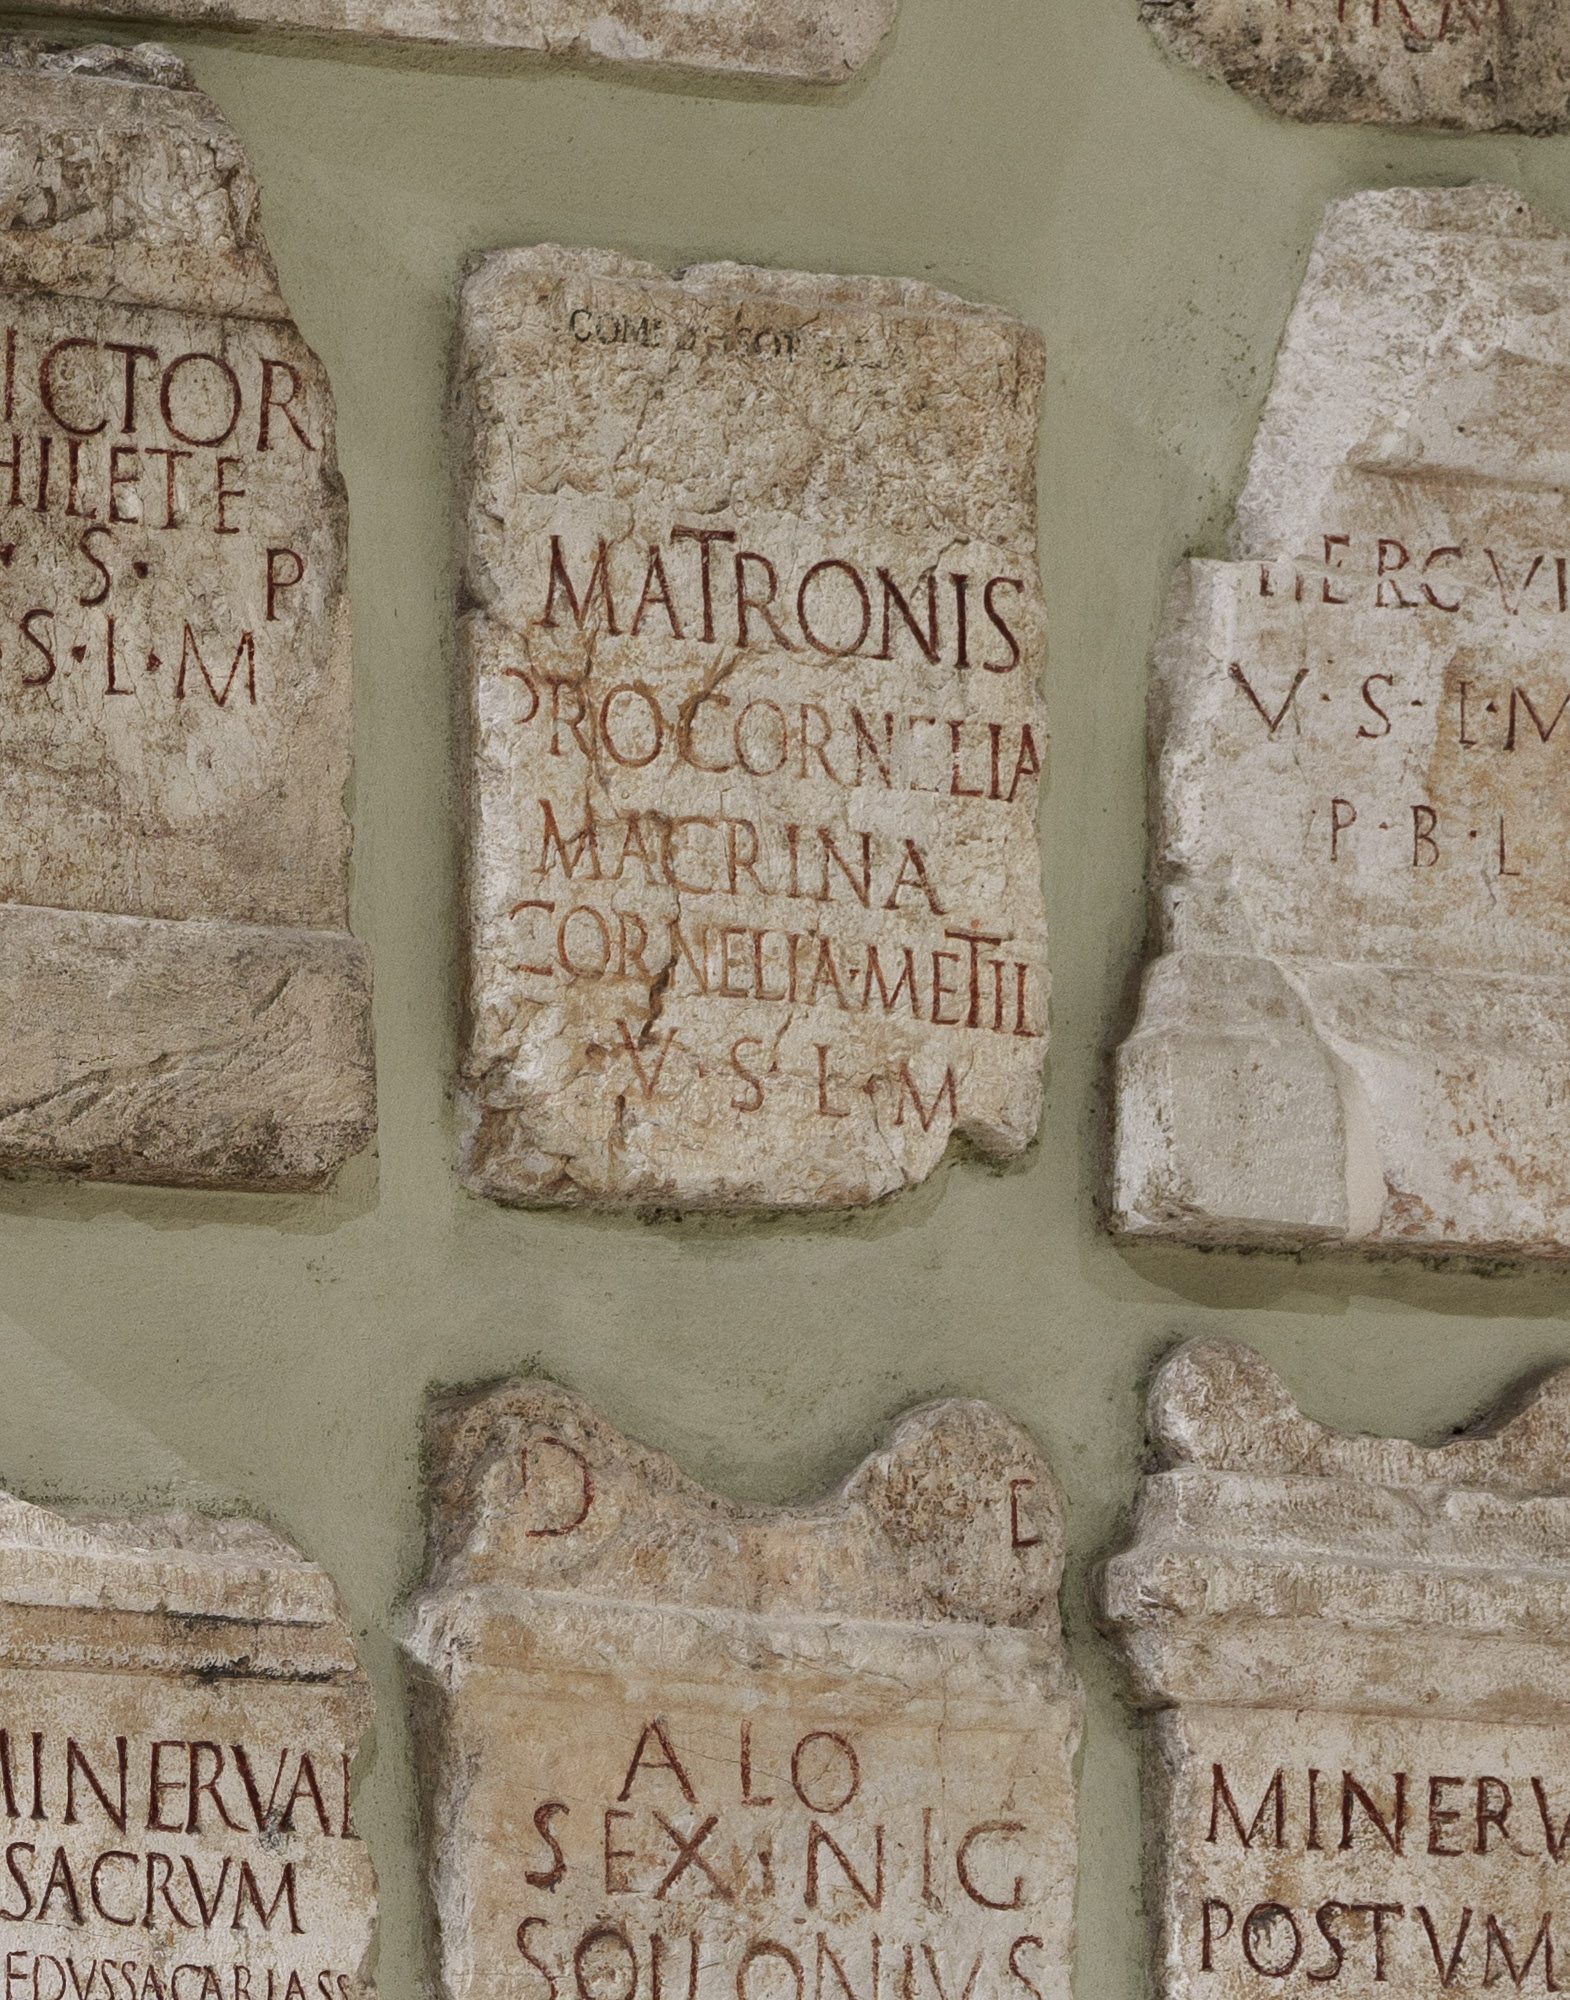 ICTOR
HILETE
· S · P
· S · L · M
MATRONIS
PRO CORNELIA
MACRINA
CORNELIA·METIL
· V · S · L · M
HERCVL
V · S · L · M
P · B · L
MINERVAE
SACRVM
D D
ALO
SEX·NIG
SOLLONIVS
MINERV
POSTVM